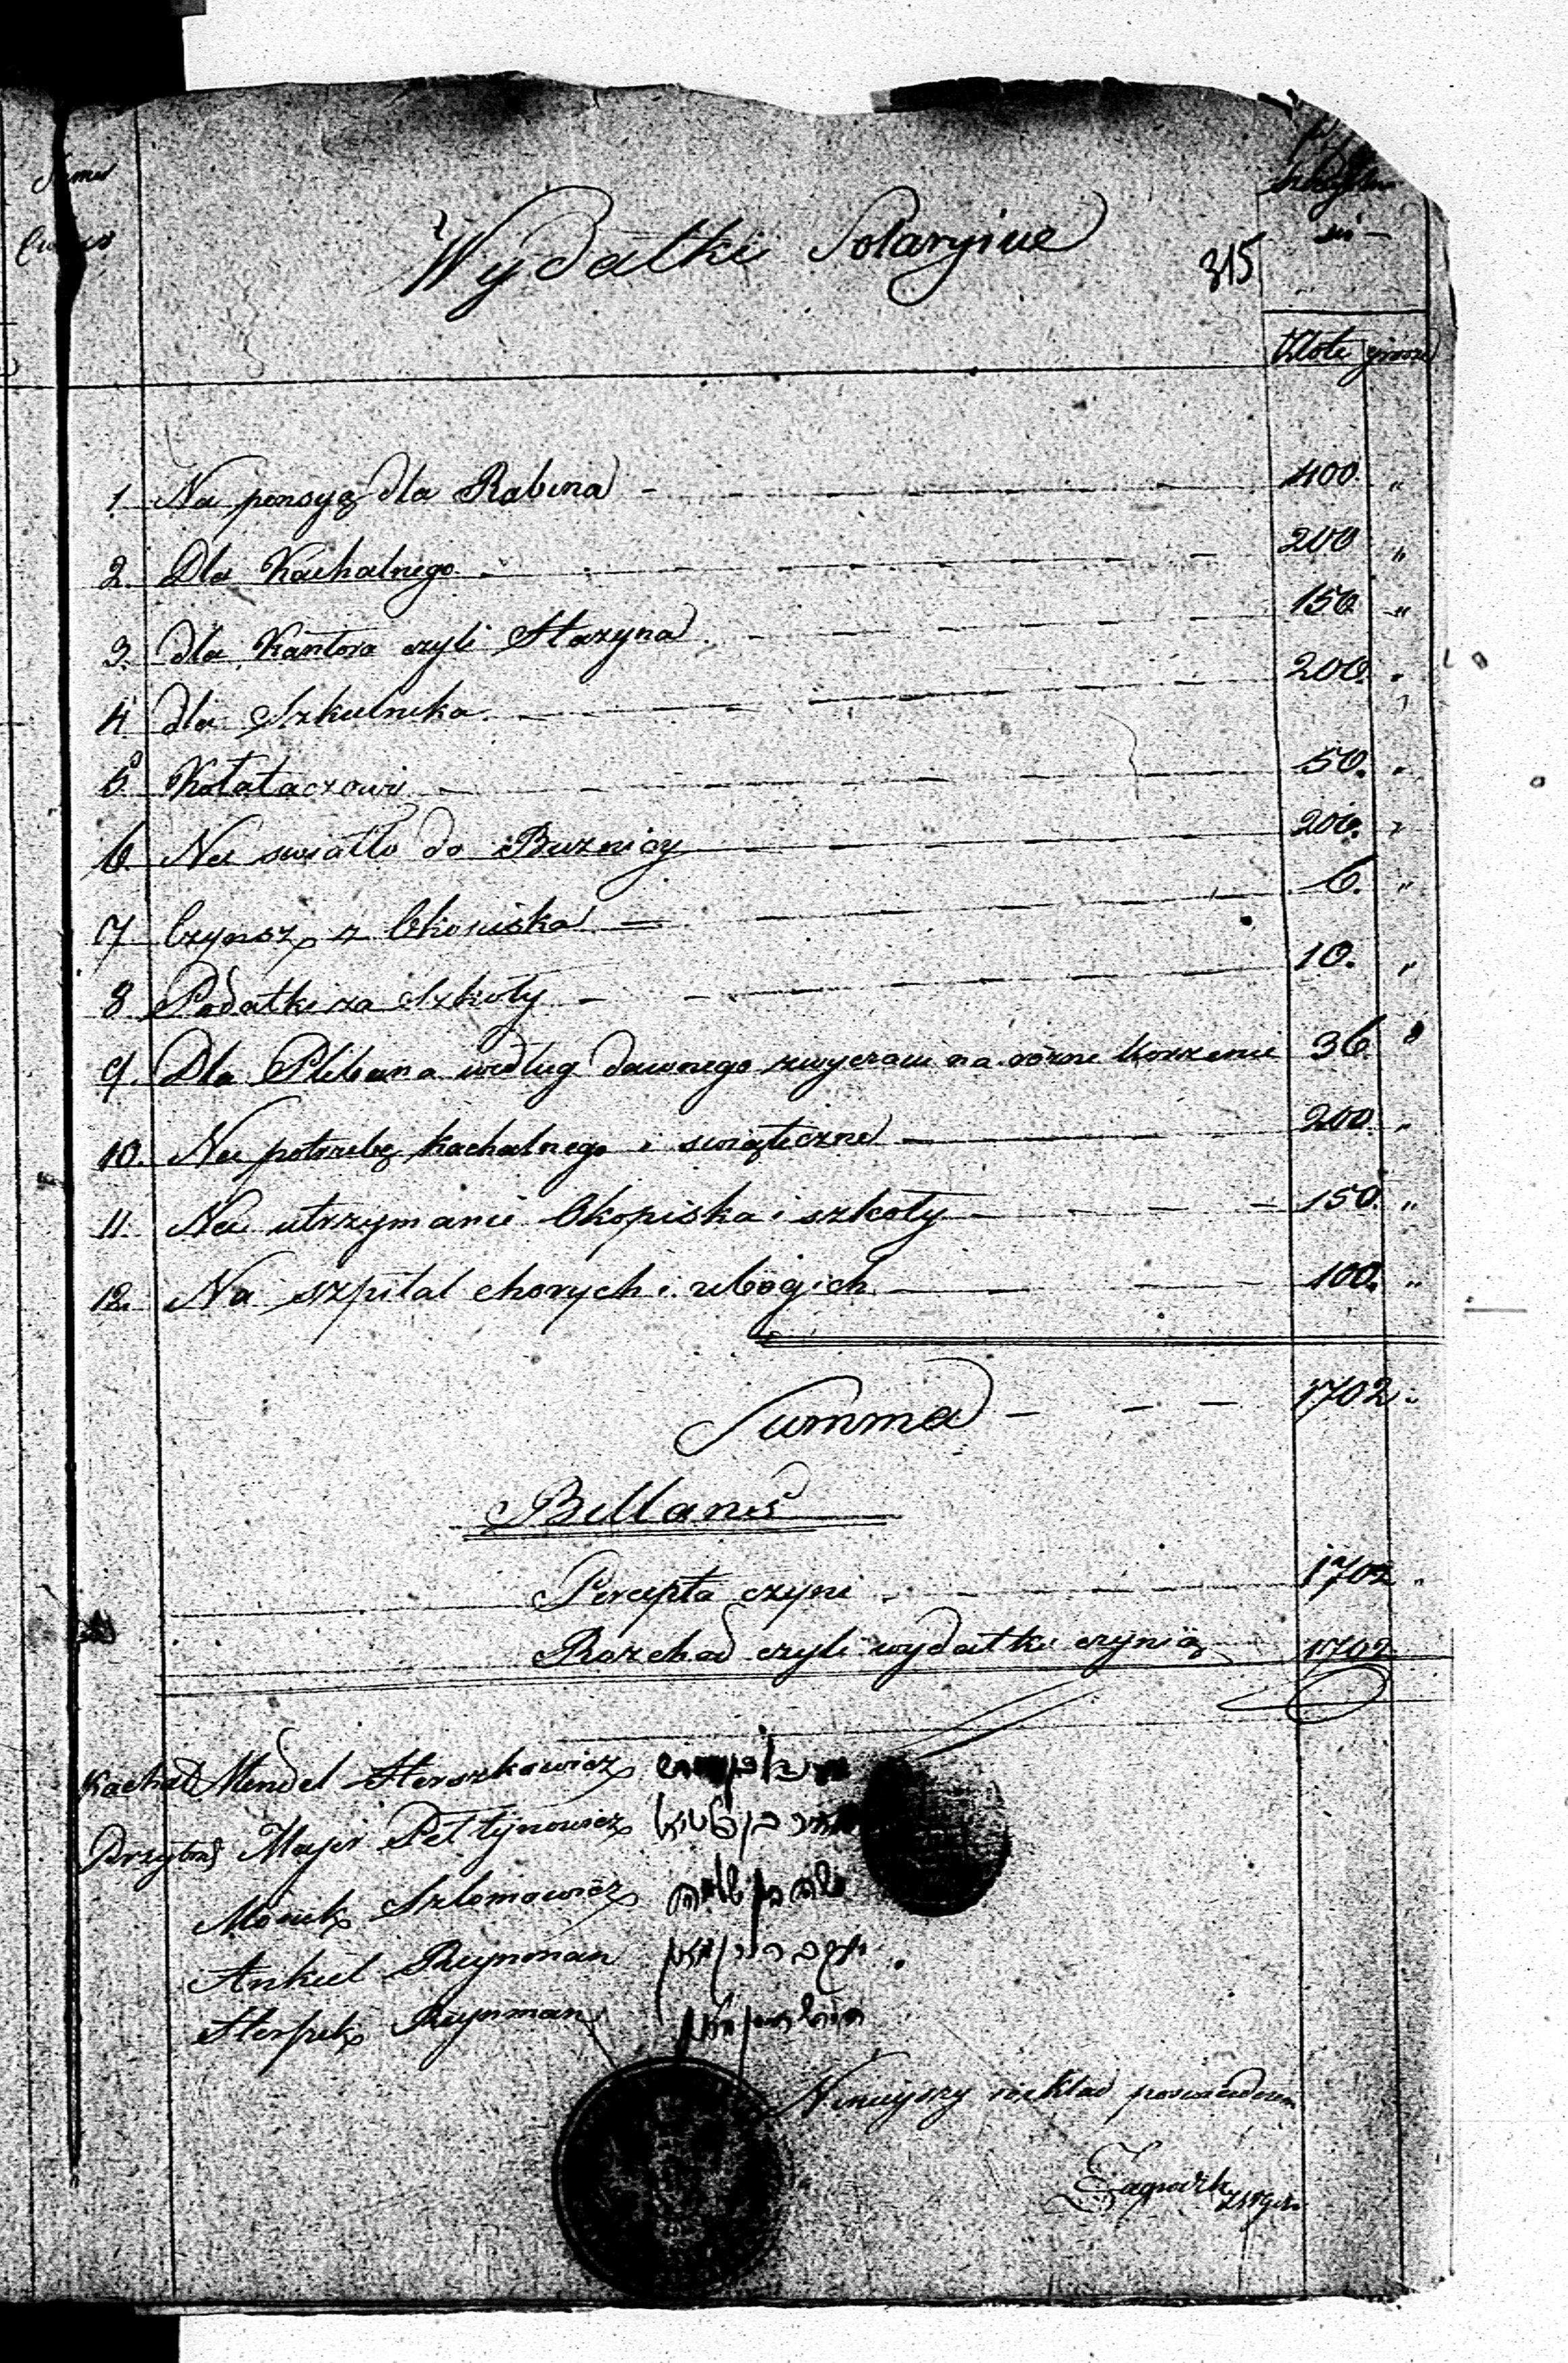 Wydatki Solaryine
315
złote grosze
1. Na pensyę dla Rabina - 400. "
2. Dla Kachalnego - 200 "
3. dla Kantora czyli Hazyna - 150 "
4 dla Szkulnika - 200. "
5. Kołataczowi - 50. "
6. Na swiatło do Buznicy 200. "
7 Czynsz z Okopiska - 6. "
8 Podatki za Szkoły - 10. "
9. Dla Plibana według dawnego zwyczaiu na rózne korzenie 36 "
10. Na potrzebę kachalnego i swiąteczne - 200. "
11. Na utrzymanie Okopiska i szkoły - 150. "
12. Na szpital chorych i ubogich - 100. "
Summa - - - 1702 "
Billans
Percepta czyni - 1702 "
Rozchod czyli wydatki czynią 1702
Kachał Mendel Herszkowicz
Przybrani Mayer
Mosiek Szlomowicz
Ankiel Reynman יעקב ריינמאן
Herszek Reynman
Ninieyszy rozkład poswiadczam